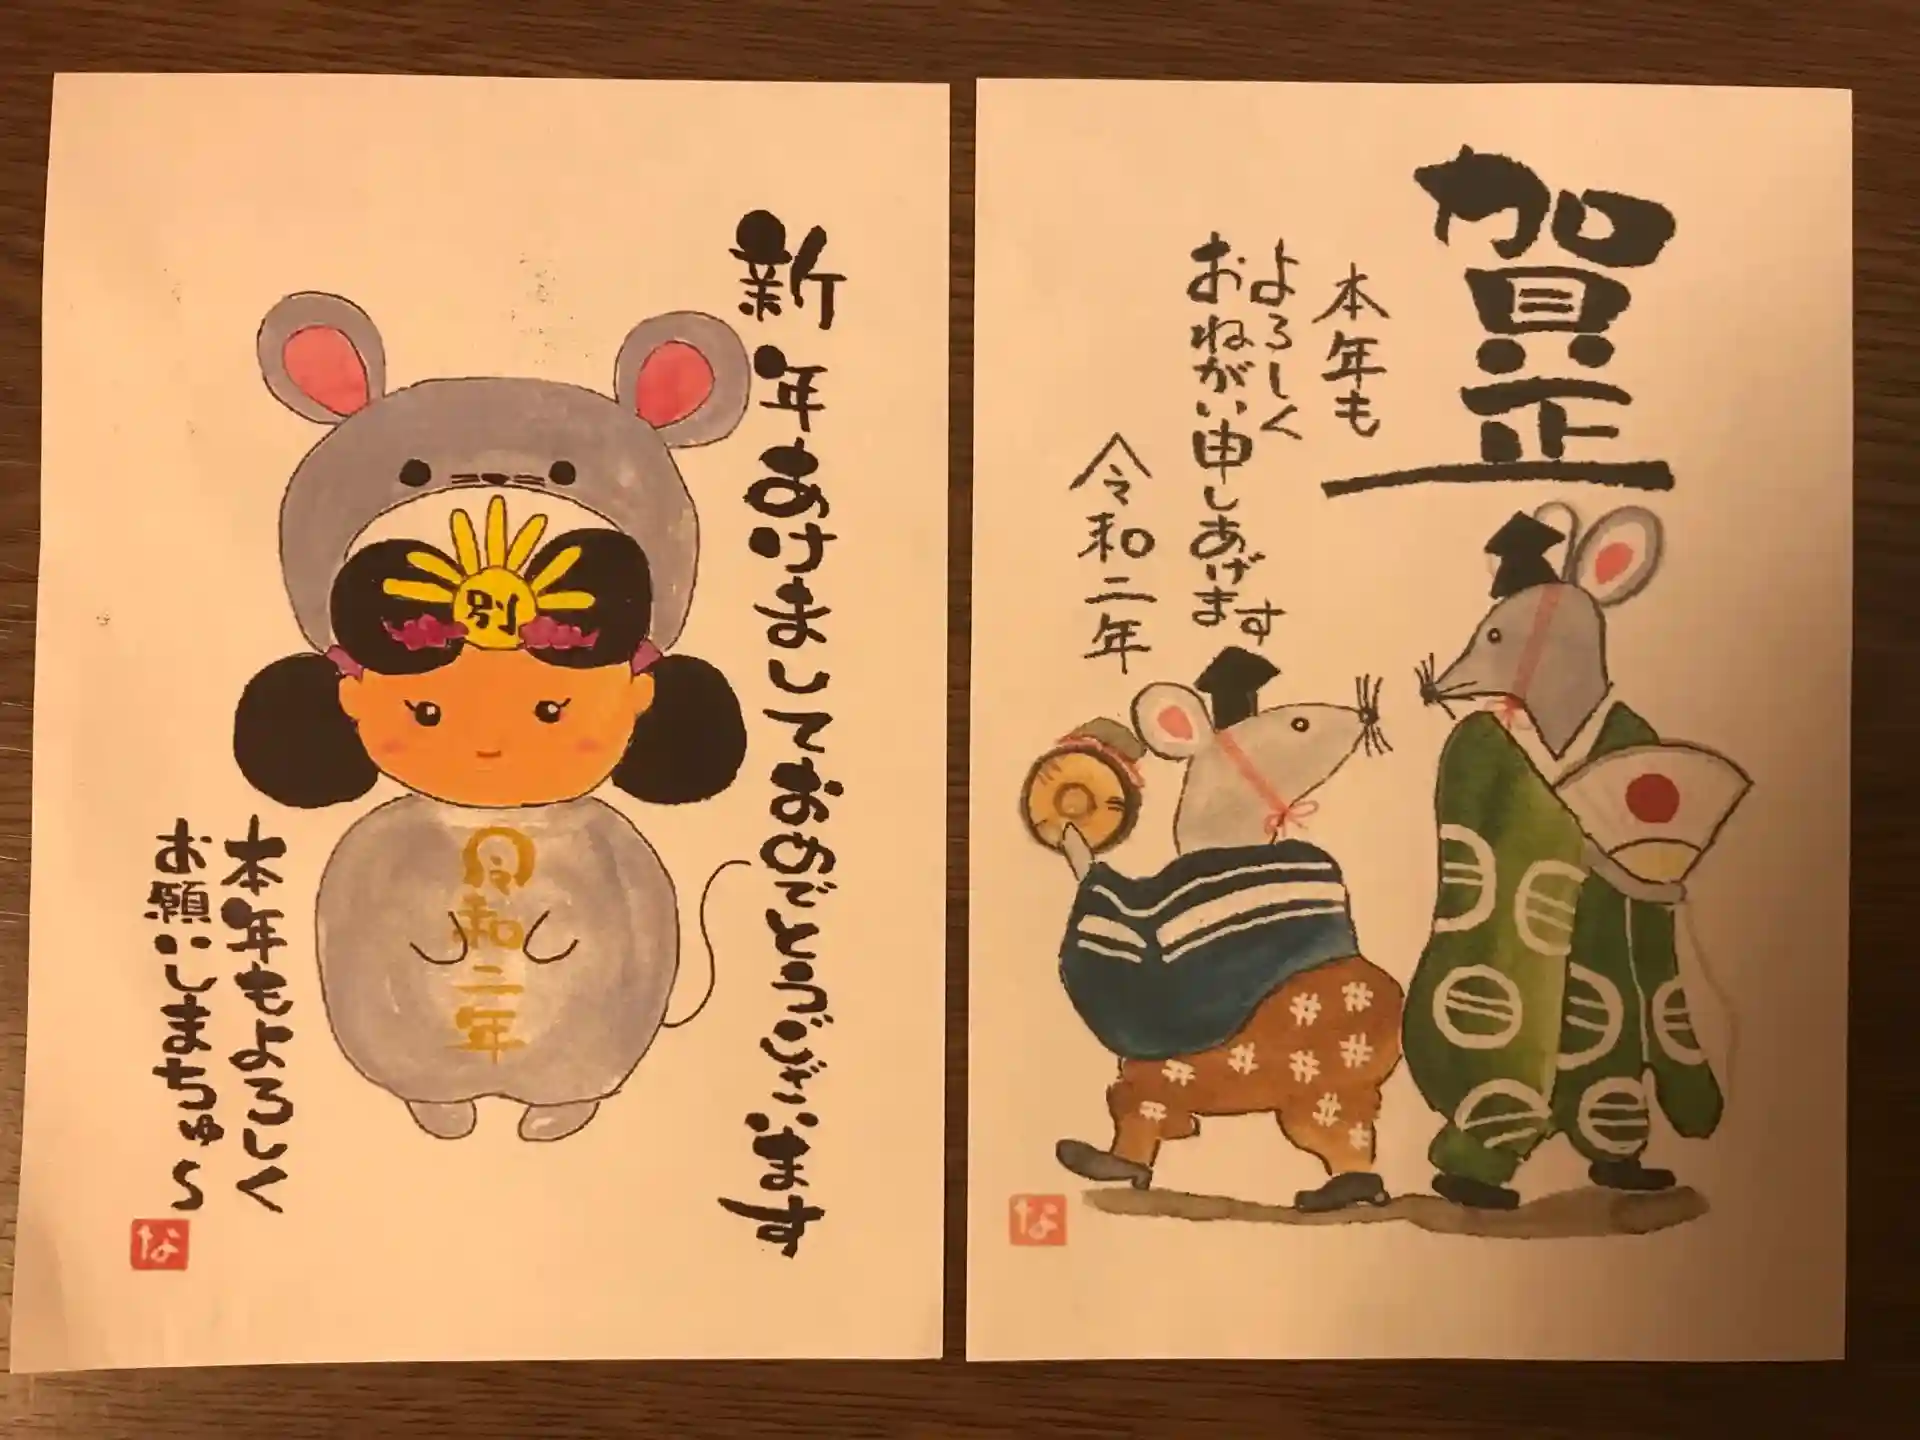 新年あけましておめでとうございます
別
令和二年
本年もよろしく
お願いしまちゅ〜
な
賀正
本年も
よろしく
おねがい申しあげます
令和二年
な